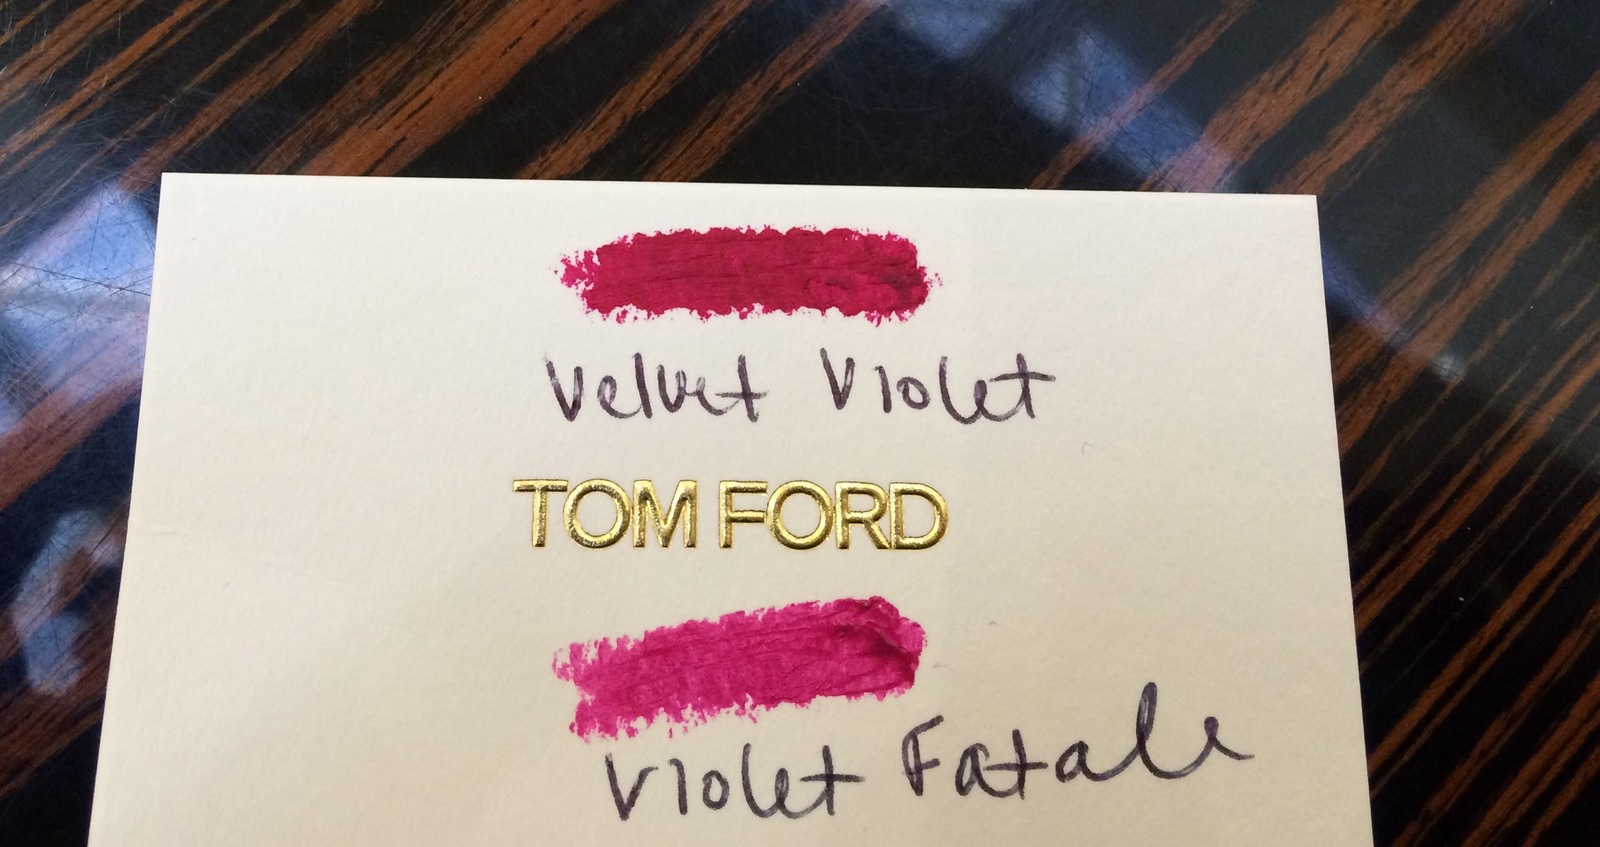 Velvet Violet
TOM FORD
Violet Fatale